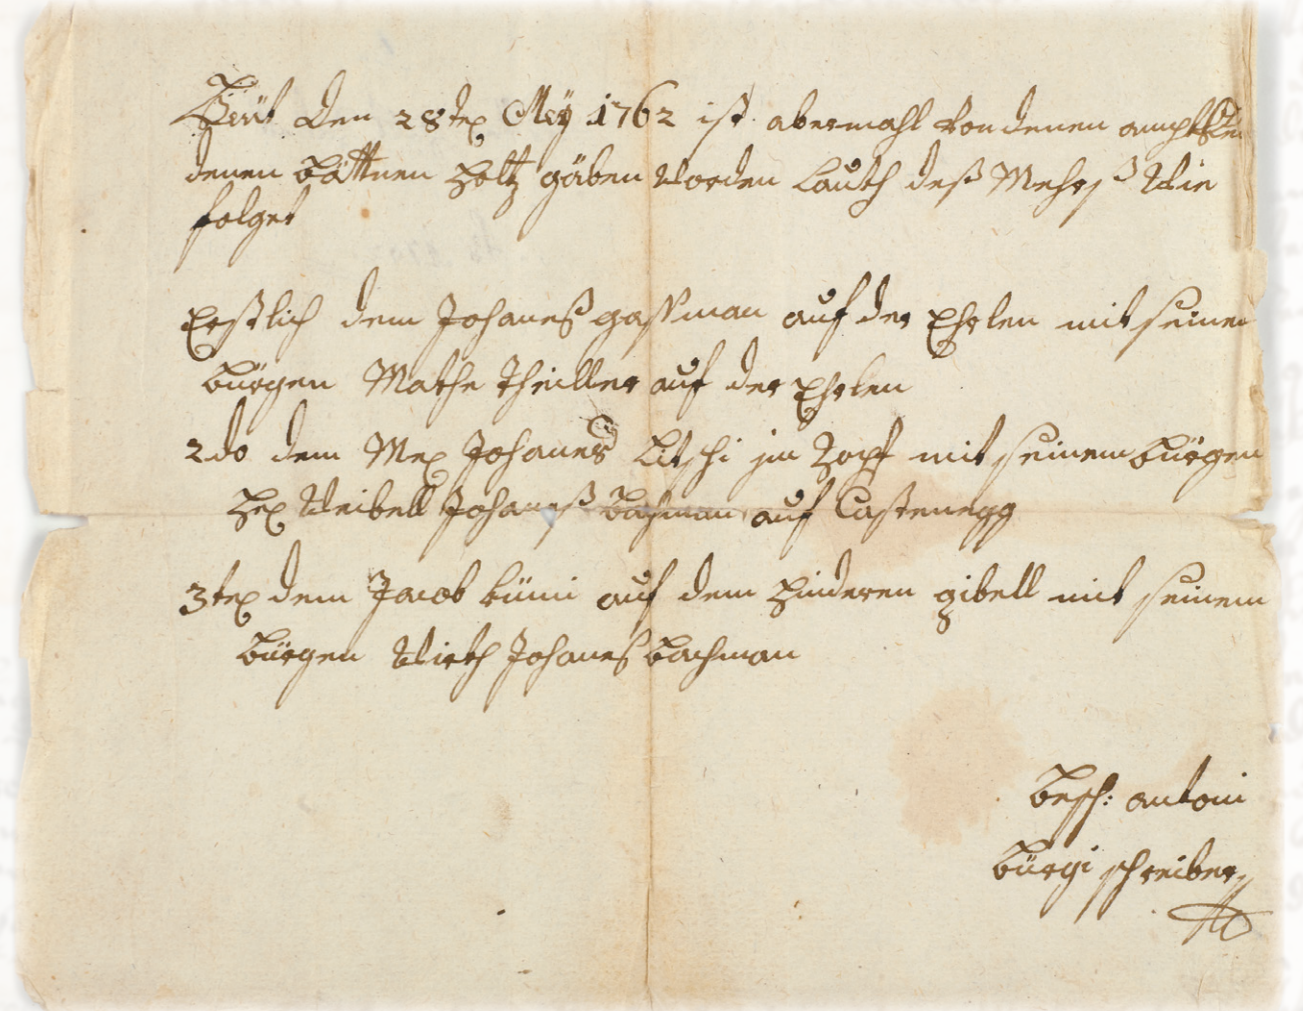 Heüt den 28ten Meÿ 1762 ist abermahl von denen amptsleü
denen bättnen Holtz gäben worden lauth deß Mehrß wie
folget
Erstlich dem Johaneß gassman auf der Ehrlen mit seinem
bürgen Mathe Theiller auf der Ehrlen
2do dem Mer Johanes Litschi jm Zopf mit seinem bürgen
Hr Weibell Johaneß Bachman auf Castenegg
3ten dem Jacob kümi auf dem Hinderen gibell mit seinem
bürgen Wirth Johanes bachman
besch: antoni
bürgi schreiber